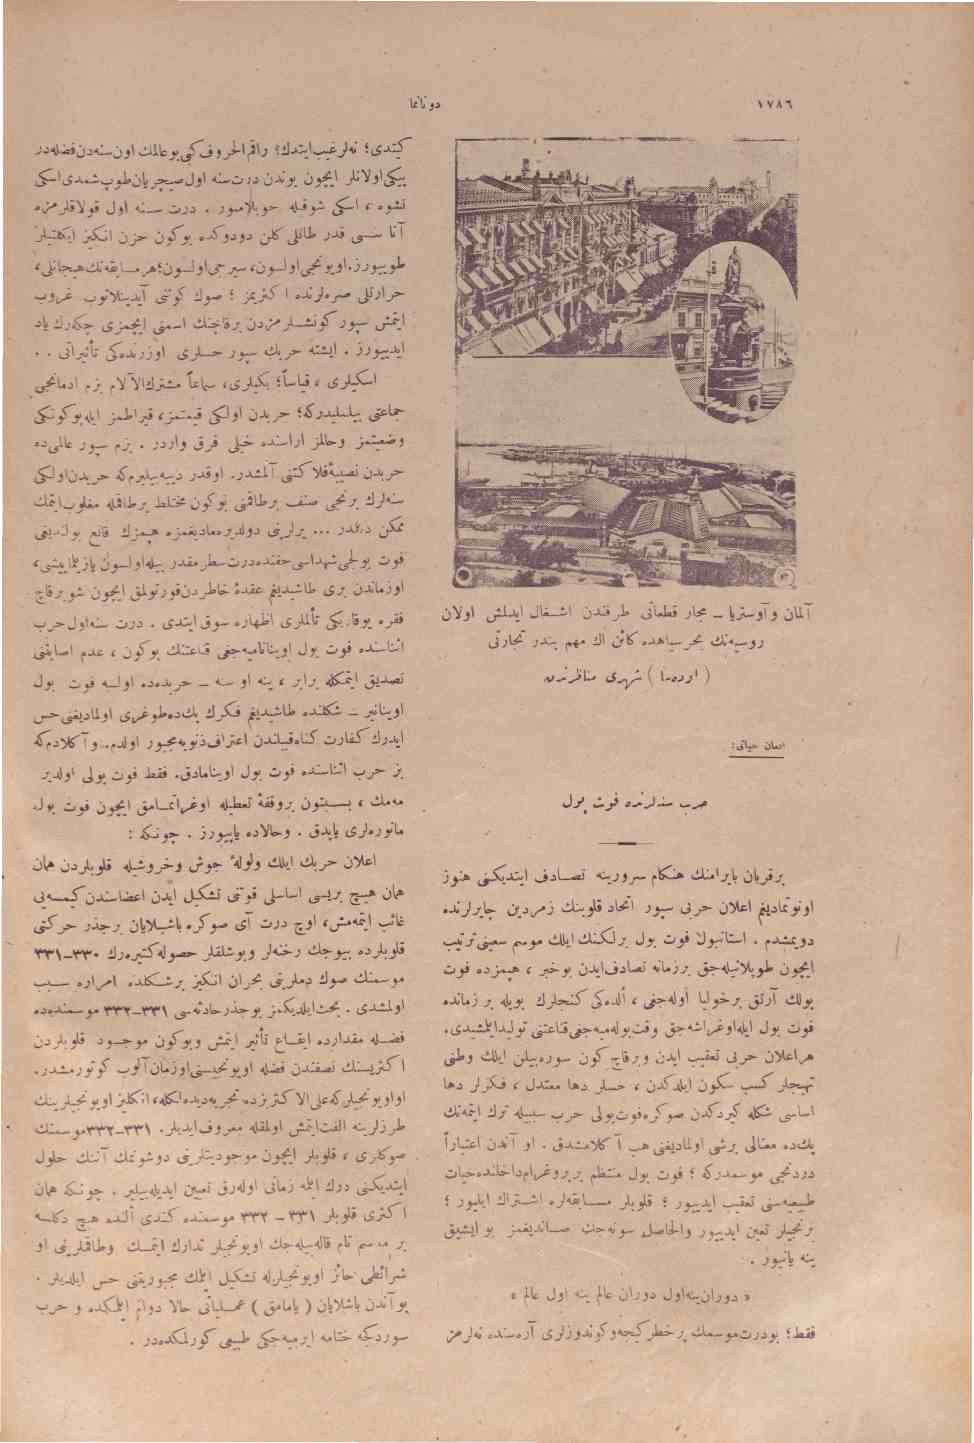 ١٧٨٦
دوناما
آلمان وآوستریا ــ مجار قطعاتی طرفندن اشغال ایدلش اولان
روسیه‌نك بحرسیاهده كائن اك مهم بندر تجارتی
( اوده‌سا ) شهری مناظرندن
ادمان حیاتی:
حرب سنه‌لرنده فوت بول
برقربان بایرامنك هنكام سرورینه تصادف ایتدیكنی هنوز
اونوتمادیغم اعلان حربی سپور اتحاد قلوبنك زمردین چایرلرنده
دویمشدم . استانبول فوت بول برلكنك ایلك موسم سعینی ترتیب
ایچون طوپلانیله‌جق برزمانه تصادف ایدن بوخبر ، هپمزده فوت
بولك آرتق برخولیا اوله‌جغی ، ألده‌كی كنجلرك بویله بر زمانده
فوت بول ایله اوغراشه‌جق وقت بوله‌میه‌جغی قناعتنی تولید ایلمشیدی.
هر اعلان حربی تعقیب ایدن وبرقاچ كون سوره‌بیلن ایلك وطنی
تهیجلر كسب سكون ایلدكدن ، حسلر دها معتدل ، فكرلر دها
اساسی شكله كیردكدن صوكره فوت بولی حرب سببیله ترك ایتمه‌نك
پك‌ده معنالی برشی اولمادیغنی هپ آكلامشدق . او آندن اعتباراً
دردنجی موسمدركه ؛ فوت بول منتظم برپروغرام داخلنده حیات
طبیعیه‌سنی تعقیب ایدییور ؛ قلوبلر مسابقه‌لره اشتراك ایلیور ؛
برنجیلر تعین ایدییور والحاصل سونه‌جك صاندیغمز بو ایشیق
ینه یانیور .
« دوران ینه اول دوران عالم ینه اول عالم »
فقط ؛ بودرت موسمك پرخطر كیجه وكوندوزلری آره‌سنده نه‌لرمز
كیتدی ؛ نه‌لر غیب ایتدك ؟ راقم الحروف كبی بوعالمك اون سنه‌دن فضله‌در
ییكی اولانلر ایچون بوندن درت سنه اول صیچرایان طوپ شمدی اسكی
نشوه ، اسكی شوقله حوپلامیور . درت سنه اول قولاقلرمزه
آنا سسی قدر طاتلی كلن دودوكده بوكون حزن انكیز ایكلتیلر
طویییورز. اویونجی اولسون ، سیرجی اولسون ؛ هر مسابقه‌نك هیجانلی ،
حرارتلی صره‌لرنده اكثریمز ؛ صوك كوننی آیدینلاتوب غروب
ایتمش سپور كونشلرمزدن برقاچنك اسمنی ایچمزی چكه‌رك یاد
ایدییورز . ایشته حربك سپور حسلری اوزرنده‌كی تأثیراتی . .
اسكیلری ، قیاساً ؛ یكیلری ، سماعاً مشترك الآلام بزم ادمانجی
جماعتی بیلملیدركه ؛ حربدن اولكی قیمتمز ، قیراطمز ایله بوكونكی
وضعیتمز وحالمز اراسنده خیلی فرق واردر . بزم سپور عالمی‌ده
حربدن نصیبهٔ فلاكتنی آلمشدر. اوقدر دییه‌بیلیرم كه حربدن اولكی
سنه‌لرك برنجی صنف برطاقمنی بوكون مختلط برطاقمله مغلوب ایتمك
ممكن دكلدر ... یرلرینی دولدیره‌مادیغمزه هپمزك قانع بولندیغی
فوت بولجی شهداسی حقنده درت سطر مقدر بیله اولسون یازیلمایشی ،
اوزماندن بری طاشیدیغم عقدهٔ خاطردن قورتولمق ایچون شو برقاچ
فقره یوقاریكی تأملری اظهاره سوق ایتدی . درت سنه اول حرب
اثناسنده فوت بول اوینانامیه‌جغی قناعتنك بوكون ، عدم اصابتنی
تصدیق ایتمكله برابر ، ینه او سه ــ حربده‌ده اولسه فوت بول
اوینانیر ــ شكلنده طاشیدیغم فكرك پك‌ده طوغری اولمادیغنی حس
ایدرك كفارت كناه قبیلندن اعتراف ذنوبه مجبور اولدم. وآكلادم كه
بز حرب اثناسنده فوت بول اوینامادق. فقط فوت بولی اولدیر
مه‌مك ، بسبتون بروقفهٔ تعطیله اوغراتمامق ایچون فوت بول
مانوره‌لری یاپدق . وحالاده یاپییورز . چونكه :
اعلان حربك ایلك ولولهٔ جوش وخروشیله قلوبلردن همان
همان هیچ بریسی اساسلی قوتنی تشكیل ایدن اعضاسندن كیمسه‌یی
غائب ایتمه‌مش ، اوچ درت آی صوكره باشلایان برجذر حركتی
قلوبلرده بیوجك رخنه‌لر وبوشلقلر حصوله كتیره‌رك ٣٣٠ــ٣٣١
موسمنك صوك دملرینی بحران انكیز برشكلده امراره سبب
اولمشدی . بحث ایلدیكمز بوجذر حادثه‌سی ٣٣١ــ٣٣٢ موسمنده‌ده
فضله مقدارده ایقاع تأثیر ایتمش وبوكون موجود قلوبلردن
اكثریسنك نصفندن فضله اویونجیسنی اوزمان آلوب كوتورمشدر.
او اویونجیلركه علی الاكثر بزده تجربه‌دیده‌لكله ، انكلیز اویونجیلرینك
طرزلرینه الفت ایتمش اولمقله معروف ایدیلر. ٣٣١ــ٣٣٢ موسمنك
صوكلری ، قلوبلر ایچون موجودیتلرینی دوشونمك آننك حلول
ایتدیكنی درك ایلمه زمانی اوله‌رق تعیین ایدیله‌بیلیر . چونكه همان
اكثری قلوبلر ٣٣١ ــ ٣٣٢ موسمنده كندی ألنده هیچ دكلسه
بر موسم تام قاله‌بیله‌جك اویونجیلر تدارك ایتمك وطاقملرینی او
شرائطی حائز اویونجیلرله تشكیل ایلمك مجبوریتنی حس ایلدیلر .
بو آندن باشلایان ( یامامق ) عملیاتی حالا دوام ایلمكده و حرب
سوردكجه ختامه ایرمیه‌جكی طبیعی كورلمكده‌در .